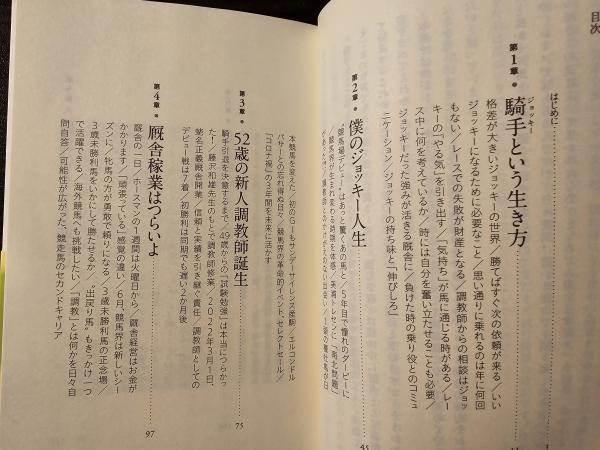 目次
はじめに
第1章・騎手という生き方
ジョッキー
格差が大きいジョッキーの世界／勝てばすぐ次の依頼が来る／いい
ジョッキーになるために必要なこと／思い通りに乗れるのは年に何回
もない／レースでの失敗が財産となる／調教師からの相談はジョッ
キーの「やる気」を引き出す／「気持ち」が馬に通じる時がある／レー
ス中に何を考えているか／時には自分を奮い立たせることも必要／
ジョッキーだった強みが活きる厩舎に／負けた時の乗り役とのコミュ
ニケーション／ジョッキーの持ち味と「伸びしろ」
第2章・僕のジョッキー人生
45
“競馬場デビュー”はあっと驚くあの馬と／5年目で憧れのダービーに
競馬界が生まれ変わる時期を体感／美浦トレセンに「南北問題」
本競馬を変えた／初のGⅠもサンデーサイレンス産駒／エルコンドル
パサーとの忘れ得ぬ日々／競馬界の革命的イベント、セレクトセール／
「コロナ禍」の3年間を未来に活かす
第3章・52歳の新人調教師誕生
75
騎手引退を決意するまで／49歳からの「試験勉強」は本当につらかっ
た！／藤沢和雄先生のもとで調教師修業／2022年3月1日、
蛯名正義厩舎開業／信頼と実績を引き継ぐ責任／調教師としての
デビュー戦は7着／初勝利は同期でも遅い2か月後
第4章・厩舎稼業はつらいよ
97
厩舎の一日／ホースマンの1週間は火曜日から／厩舎経営はお金が
かかります／「頑張っている」感覚の違い／6月、競馬界は新しいシー
ズンに／牝馬の方が勇敢で頼りになる／3歳未勝利馬の正念場／
3歳未勝利馬をいかにして勝たせるか／“出戻り馬”もきっかけ一つ
で活躍できる／海外競馬へも挑戦したい／「調教」とは何かを日々自
問自答／可能性が広がった、競走馬のセカンドキャリア